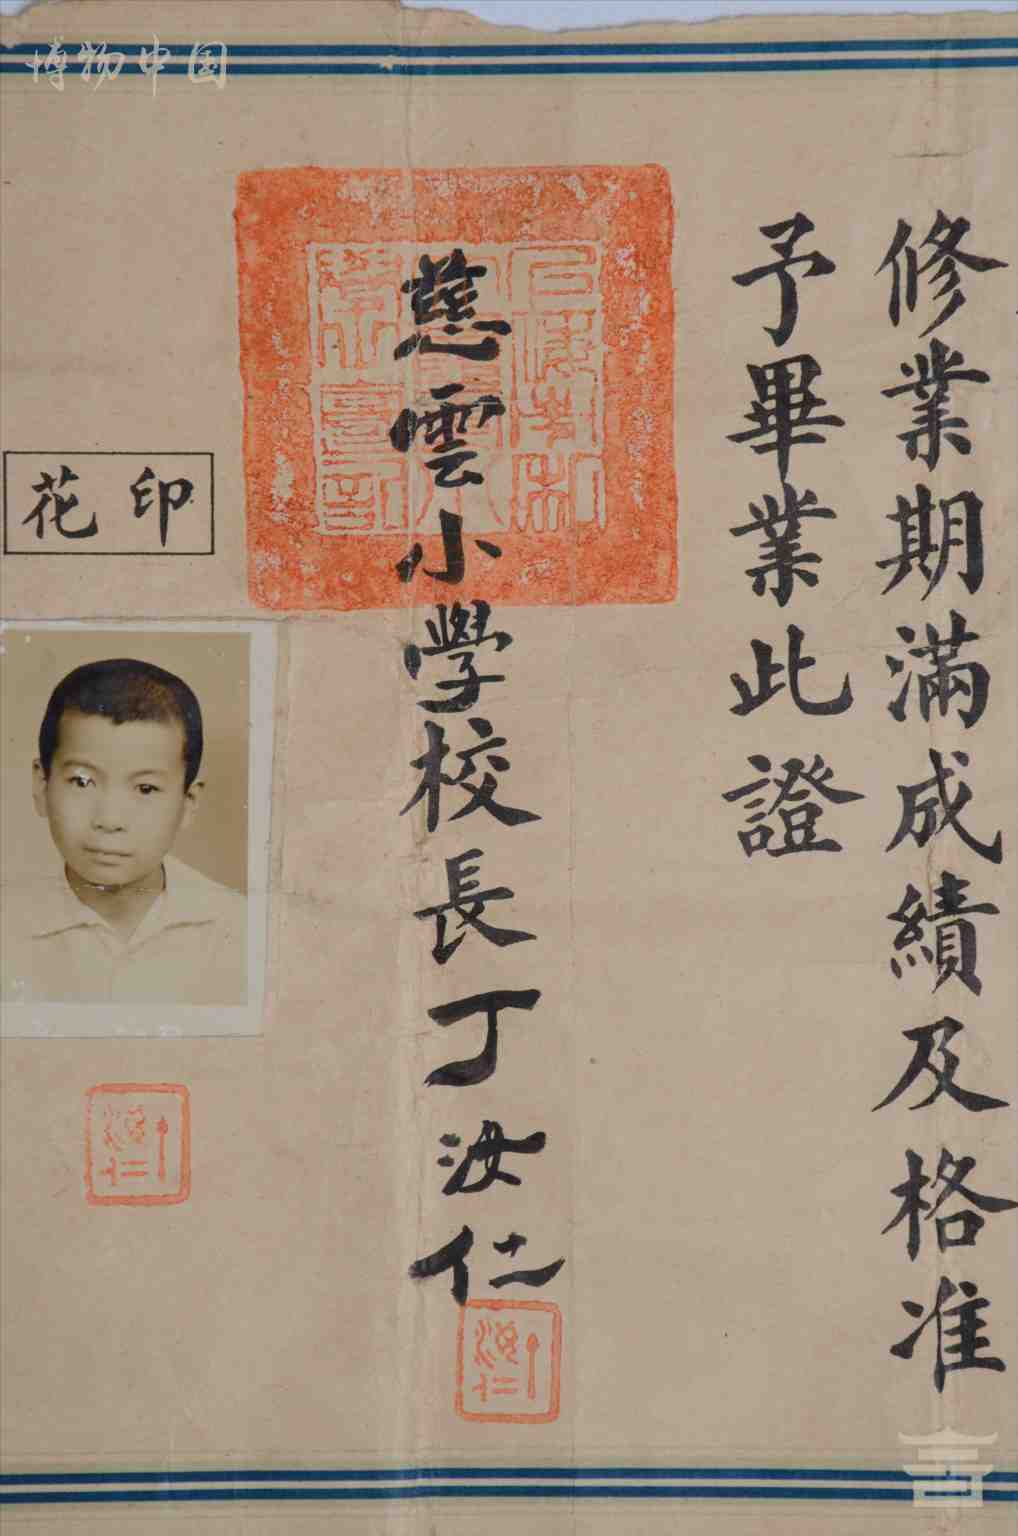 修業期滿成績及格准
予畢業此證
慈雲小學校長丁汝仁
印花
丁汝仁
丁汝仁
博物中国